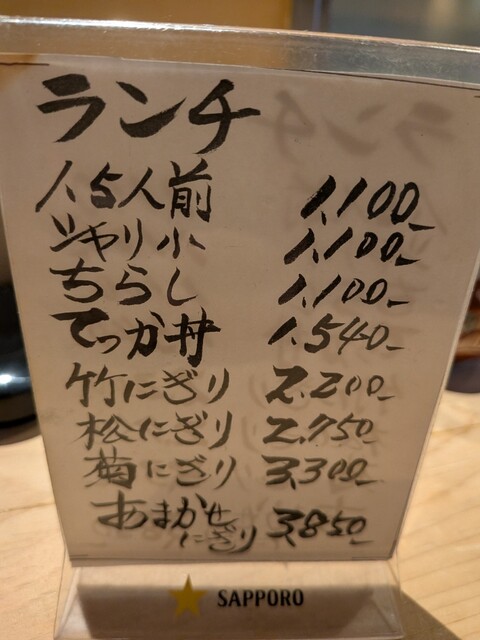 ランチ
1.5人前 1,100-
シャリ小 1,100-
ちらし 1,100-
てっか丼 1,540-
竹にぎり 2,200-
松にぎり 2,750-
菊にぎり 3,300-
おまかせ
にぎり 3,850-
SAPPORO